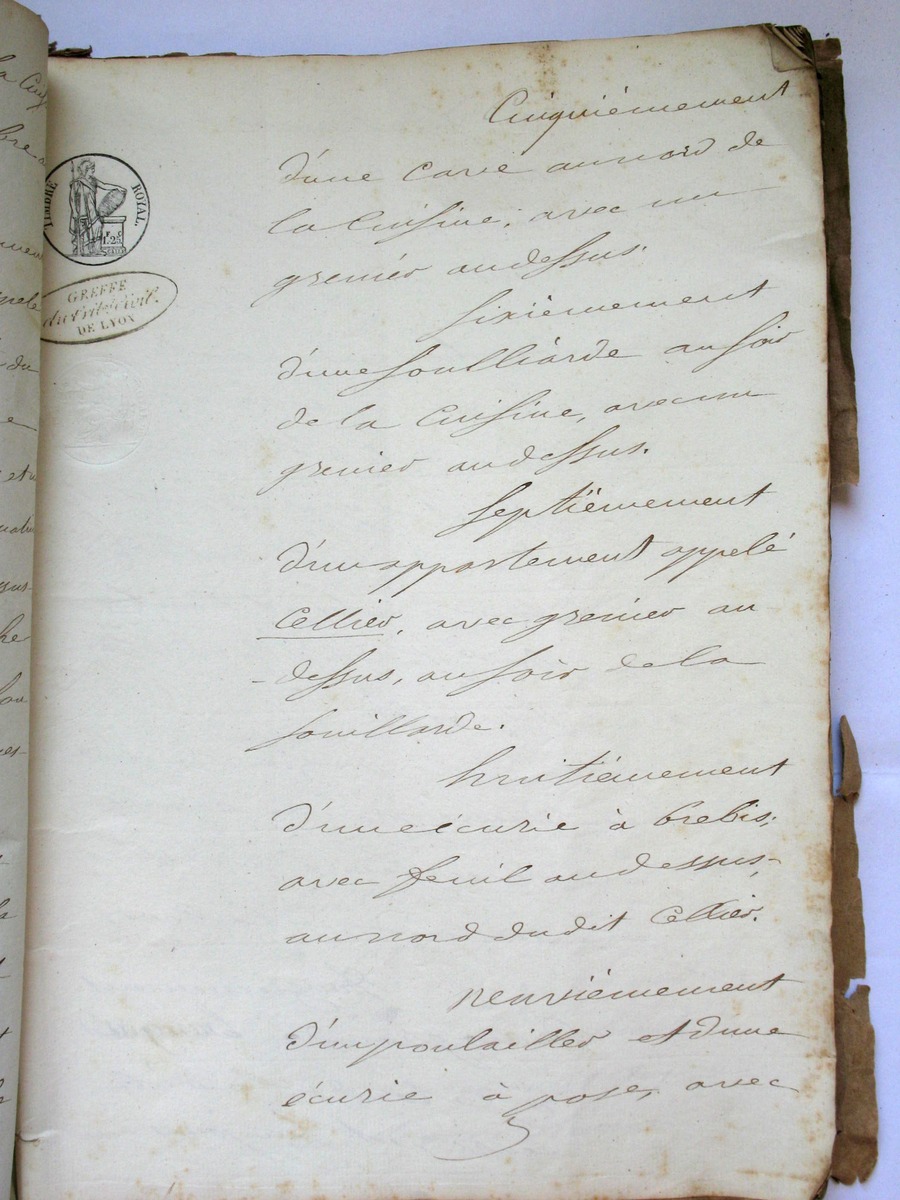 TIMBRE ROYAL.
1.F 25C
GREFFE
du trib. civil
DE LYON
Cinquièmement
d'une cave au nord de
la cuisine, avec un
grenier au dessus.
Sixièmement
d'une soulliarde au soir
de la cuisine, avec un
grenier au dessus.
Septièmement
d'un appartement appelé
Cellier, avec grenier au
-dessus, au soir de la
souillarde.
huitièmement
d'une écurie à brebis,
avec fenil au dessus,
au nord dudit Cellier.
neuvièmement
d'un poulailler et d'une
écurie à avec